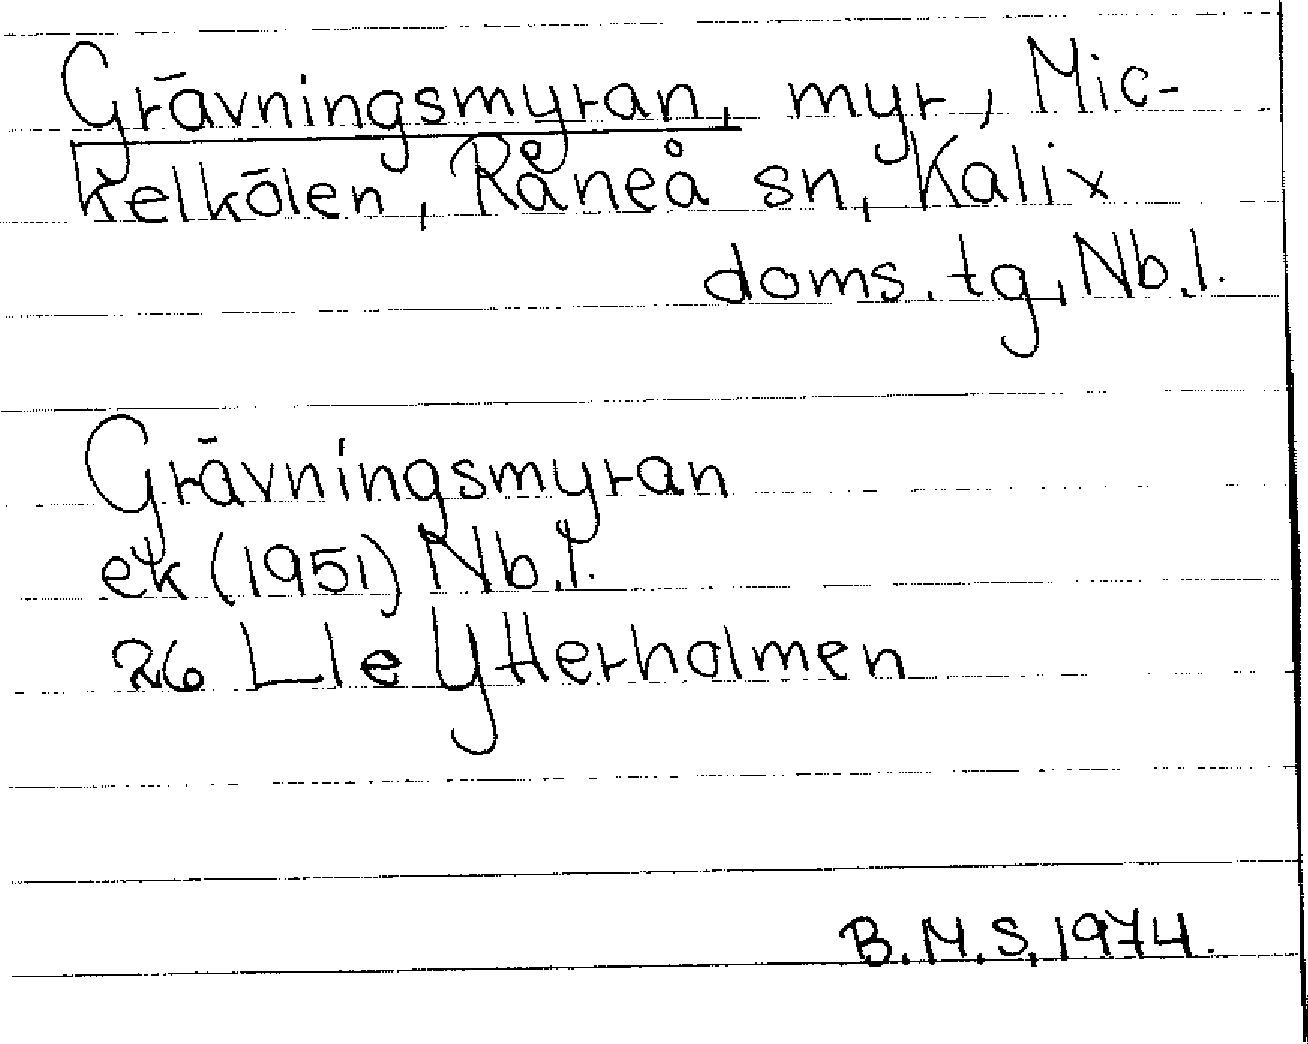 Grävningsmyran, myr, Mic-
kelkölen, Råneå sn, Kalix
doms. tg, Nb.l.
Grävningsmyran
ek (1951) Nb.l.
26 Lle Ytterholmen
B.M.S, 1974.